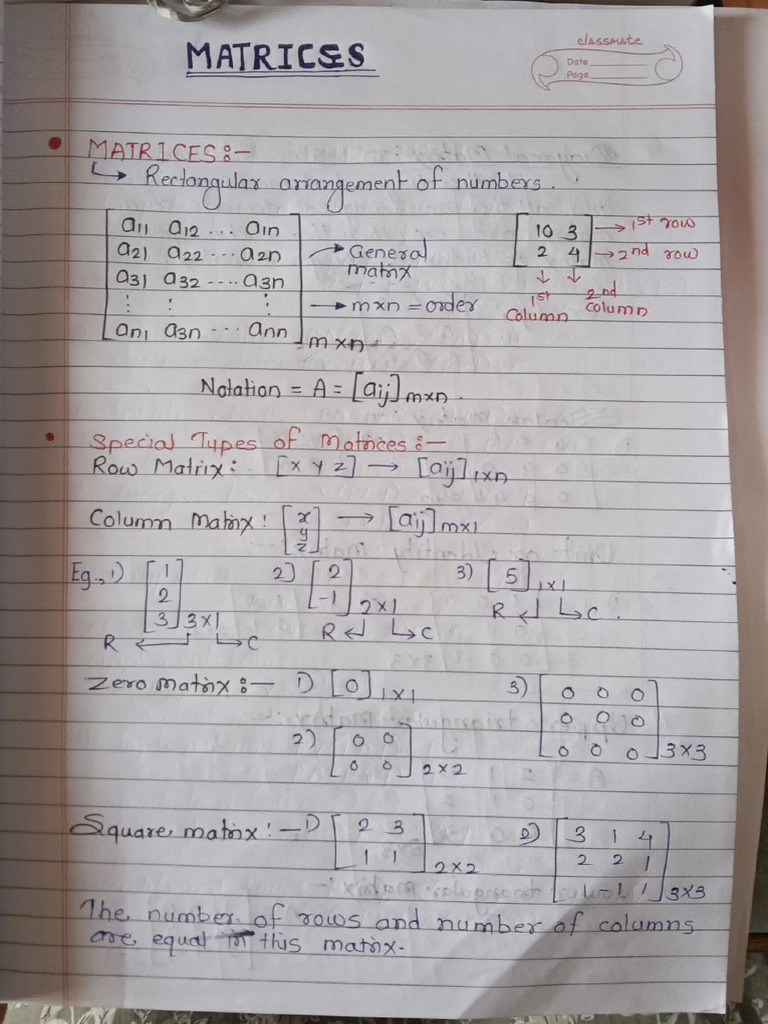 MATRICES
classmate
Date
Page
MATRICES :-
↳ Rectangular arrangement of numbers.
[a11 a12 ... a1n
a21 a22 ... a2n
a31 a32 .... a3n
⋮ ⋮ ⋮
an1 a3n ... ann] m×n
→ General matrix
→ m×n = order
[10 3 → 1st row
2 4] → 2nd row
↓ ↓
1st column 2nd column
Notation = A = [aij] m×n.
Special Types of Matrices :-
Row Matrix : [x y z] → [aij] 1×n
Column Matrix : [x y z] → [aij] m×1
Eg., 1) [1 2 3] 3×1 2) [2 -1] 2×1 3) [5] 1×1
R ← ↳ C R ↲ ↳ C R ↲ ↳ C.
Zero matrix :- 1) [0] 1×1 3) [0 0 0
0 0 0
0 0 0] 3×3
2) [0 0
0 0] 2×2
Square matrix : - 1) [2 3
1 1] 2×2
2) [3 1 4
2 2 1
1 -1 1] 3×3
The number of rows and number of columns
are equal in this matrix.